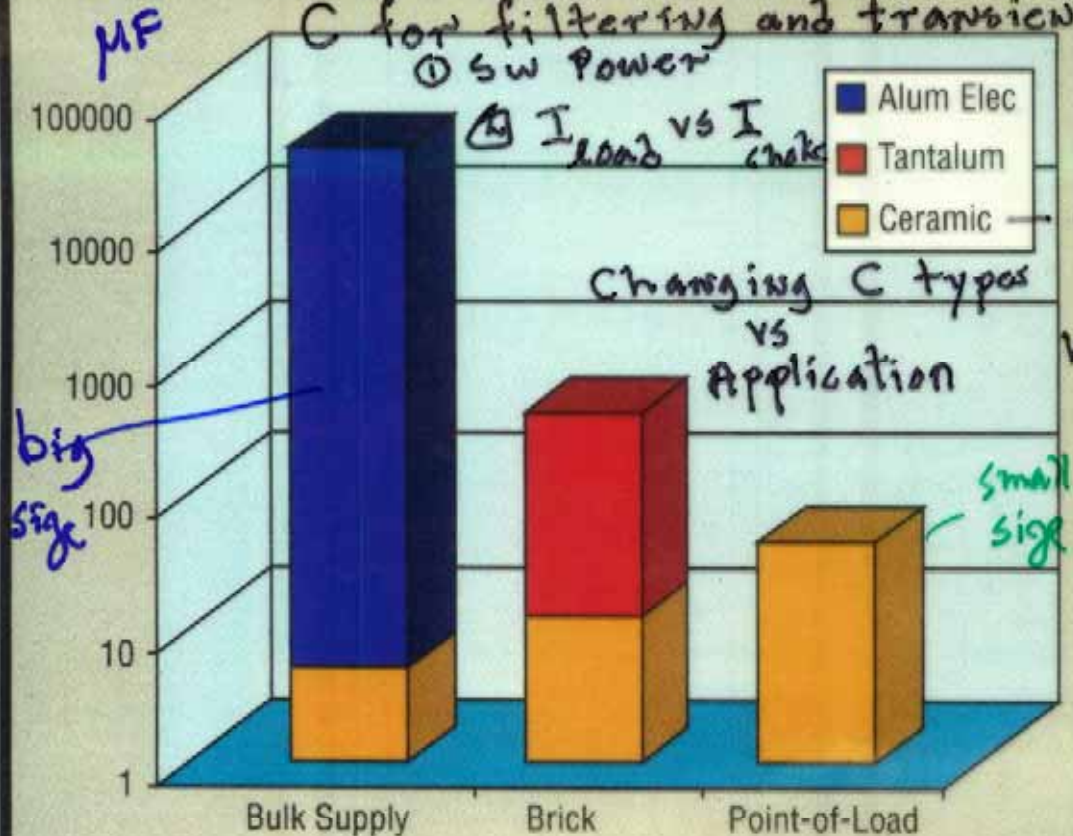 μF
C for filtering and transien
① SW Power
② I load vs I choke
Alum Elec
Tantalum
Ceramic
Changing C types
vs
Application
100000
10000
1000
100
10
1
big
size
small
size
Bulk Supply
Brick
Point-of-Load